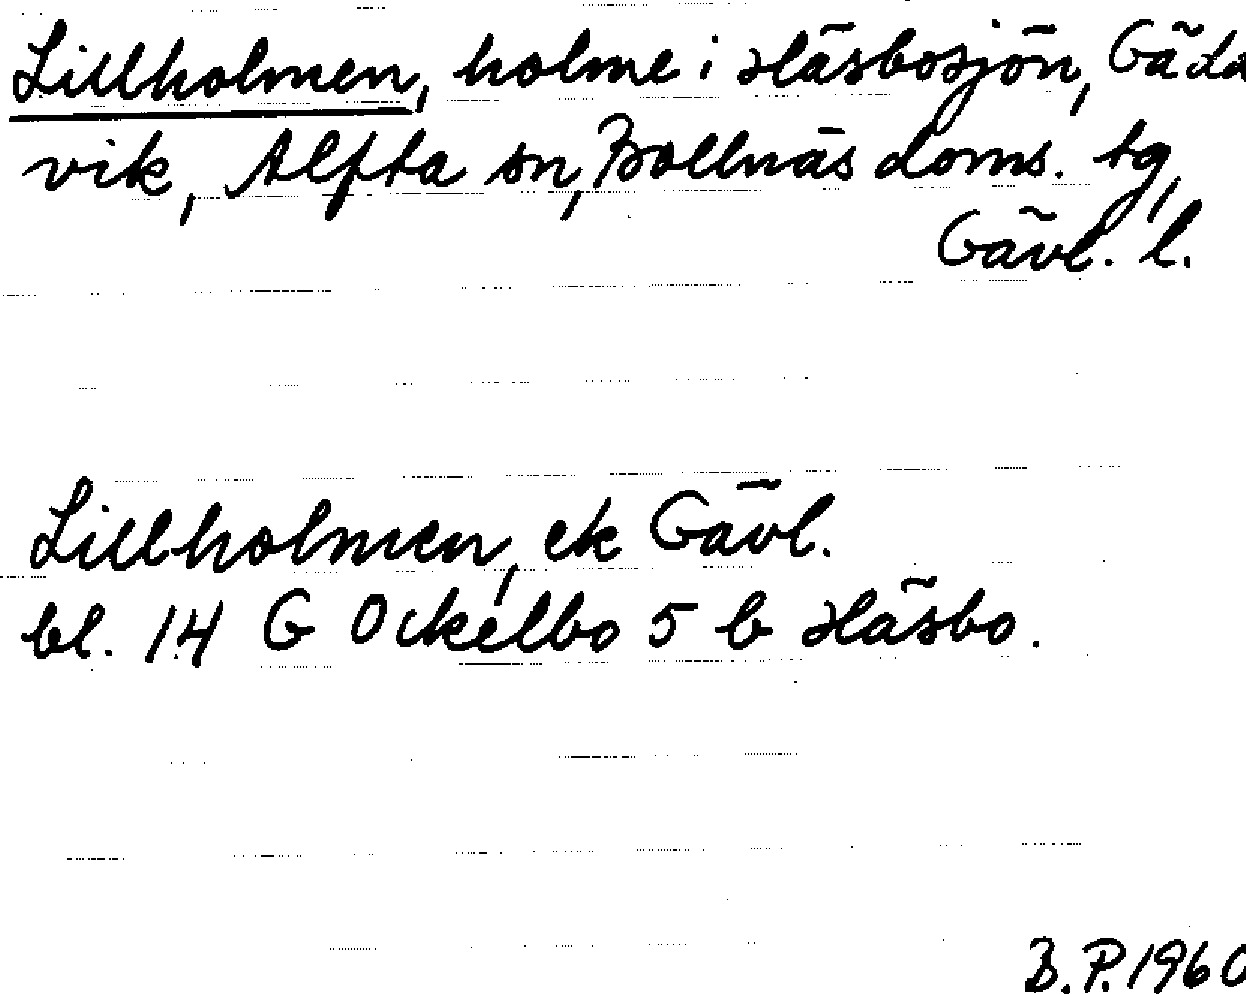 Lillholmen, holme i Häsbosjön, Gäda
vik, Alfta sn, Bollnäs doms. tg,
Gävl. l.
Lillholmen, ek Gävl.
bl. 14 G Ockelbo 5 b Häsbo.
B.P. 1960